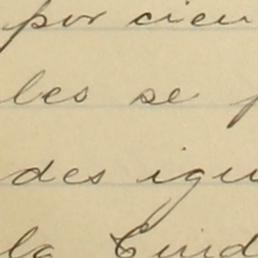 por cien
les se p
des igu
la Ciud